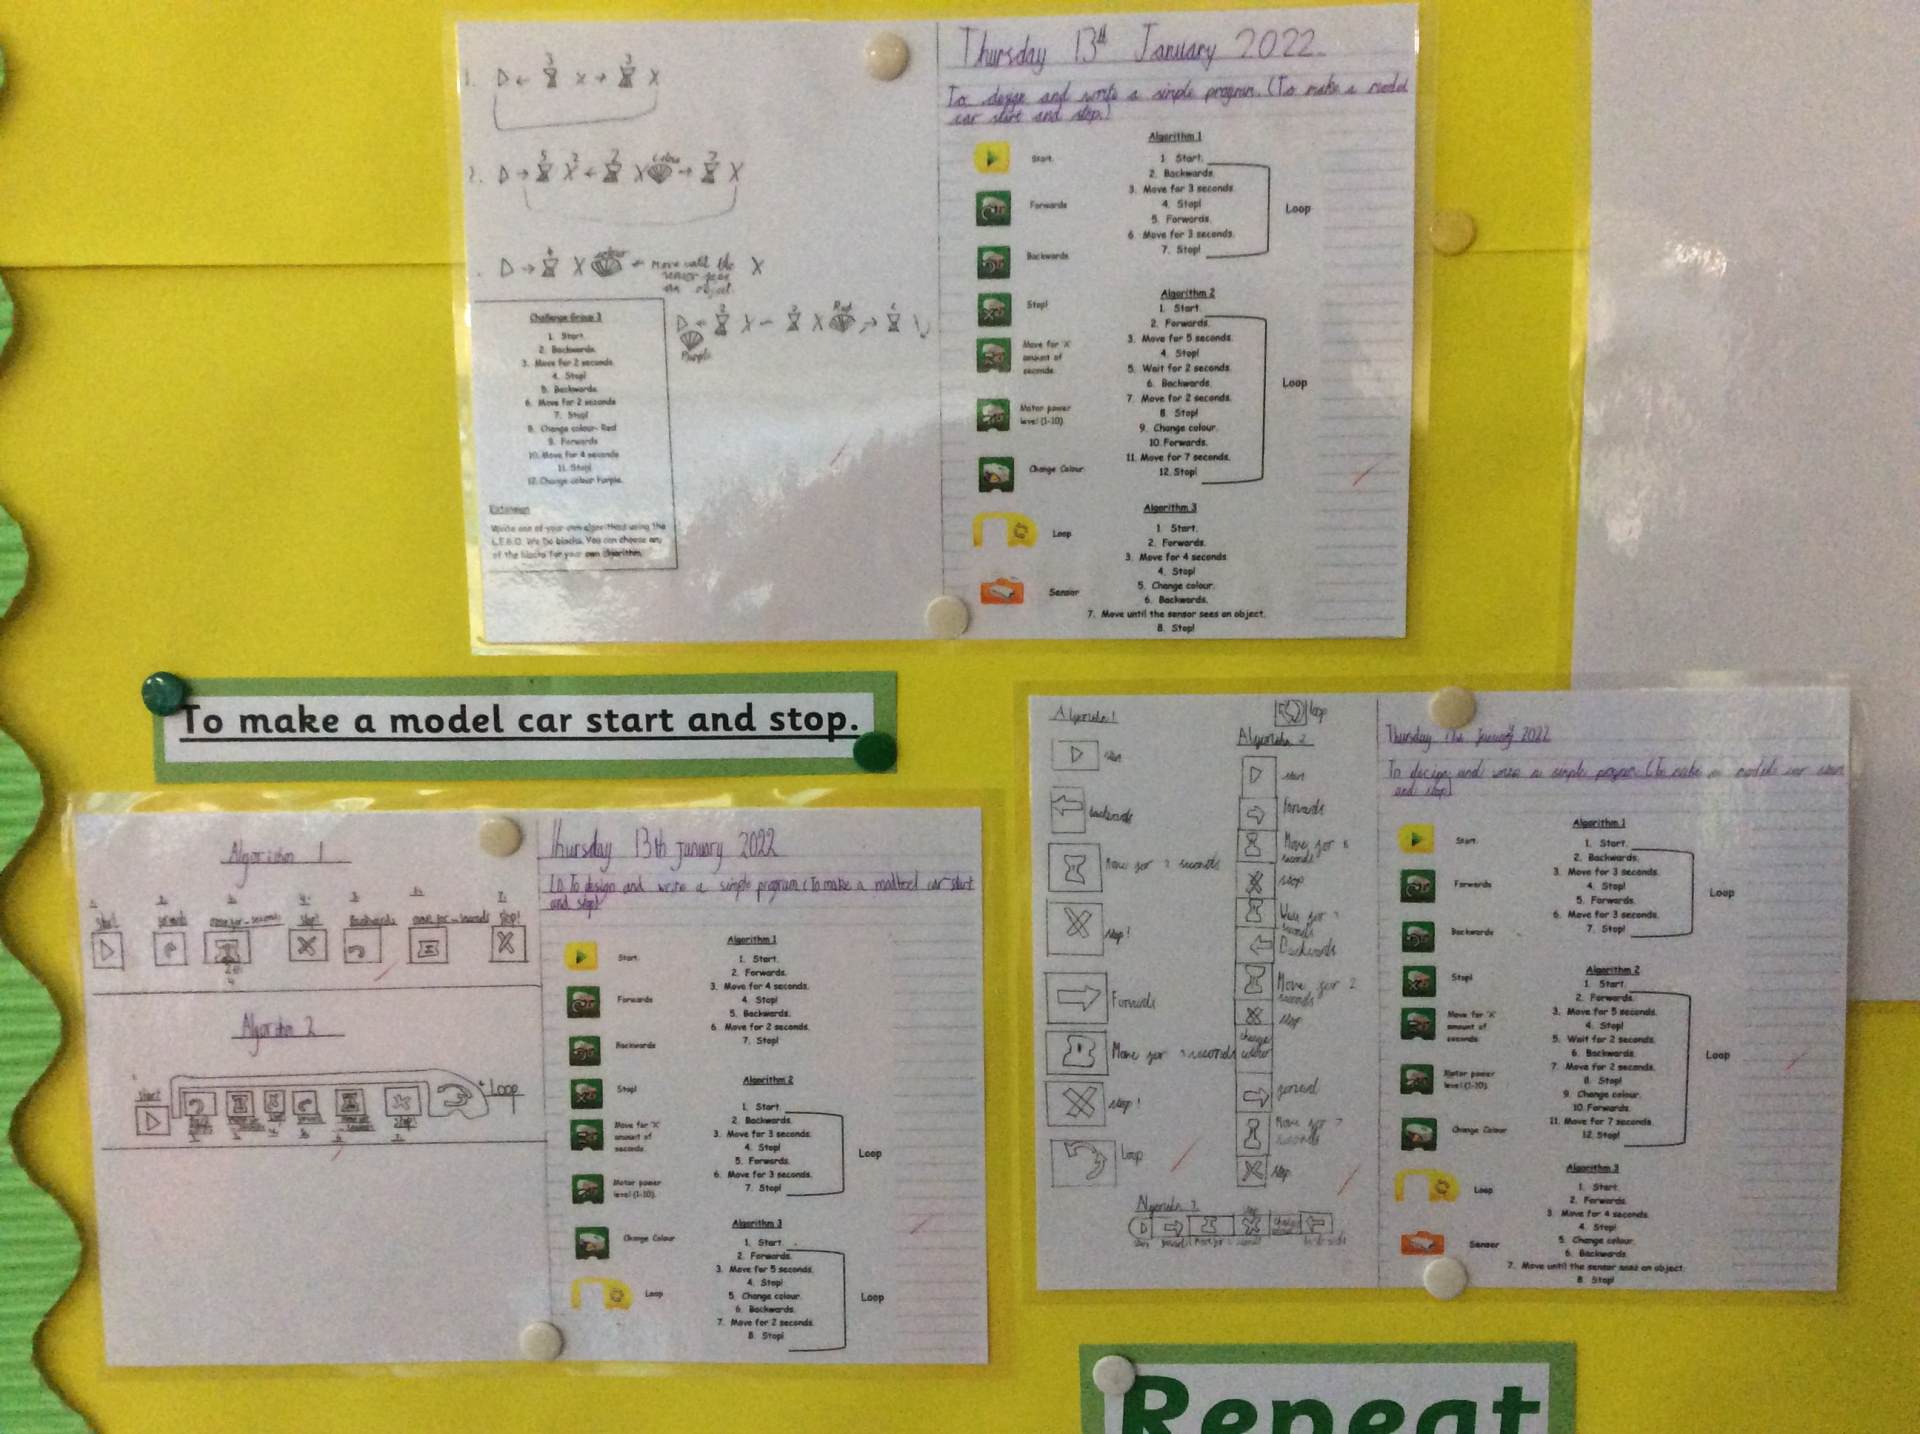 1.
Thursday 13th January 2022
To design and write a simple program. (To make a model
car start and stop.)
Start.
Forwards
Backwards
Stop!
Move for 'X'
amount of
seconds
Motor power
level (1-10)
Change Colour
Loop
Sensor
Algorithm 1
1. Start.
2. Backwards.
3. Move for 3 seconds.
4. Stop!
5. Forwards.
6. Move for 3 seconds.
7. Stop!
Loop
Algorithm 2
1. Start.
2. Forwards.
3. Move for 5 seconds.
4. Stop!
5. Wait for 2 seconds.
6. Backwards.
7. Move for 2 seconds.
8. Stop!
9. Change colour.
10. Forwards.
11. Move for 7 seconds.
12. Stop!
Loop
Algorithm 3
1. Start.
2. Forwards.
3. Move for 4 seconds.
4. Stop!
5. Change colour.
6. Backwards.
7. Move until the sensor sees an object.
8. Stop!
move until the
sensor sees
an object.
Red
Purple
Challenge Group 3
1. Start.
2. Backwards.
3. Move for 2 seconds.
4. Stop!
5. Backwards.
6. Move for 2 seconds
7. Stop!
8. Change colour- Red
9. Forwards
10. Move for 4 seconds
11. Stop!
12. Change colour Purple.
Extension
Write one of your own algorithms using the
L.E.G.O. We Do blocks. You can choose any
of the blocks for your own algorithm.
To make a model car start and stop.
Algorithm 1
Start
Backwards
stop!
Algorithm 2
start
Loop
Thursday 13th January 2022
L.O. To design and write a simple program (To make a madheel car start
and stop)
Start.
Forwards
Backwards
Stop!
Move for 'X'
amount of
seconds
Motor power
level (1-10)
Change Colour
Loop
Algorithm 1
1. Start.
2. Forwards.
3. Move for 4 seconds.
4. Stop!
5. Backwards.
6. Move for 2 seconds.
7. Stop!
Algorithm 2
1. Start.
2. Backwards.
3. Move for 3 seconds.
4. Stop!
5. Forwards.
6. Move for 3 seconds.
7. Stop!
Loop
Algorithm 3
1. Start.
2. Forwards.
3. Move for 5 seconds.
4. Stop!
5. Change colour.
6. Backwards.
7. Move for 2 seconds.
8. Stop!
Loop
Algorithm 1
start
backwards
Move for 3 seconds
stop!
Forwards
Move for 3 seconds
stop!
Loop
loop
Algorithm 2
start
forwards
Move for
seconds
stop
seconds
Backwards
Move for 2
seconds
stop
change
colour
forward
Move for 7
seconds
stop
Algorithm 3
Thursday January 2022
To design and write a simple program (To make a model car start
and stop)
Start.
Forwards
Backwards
Stop!
Move for 'X'
amount of
seconds
Motor power
level (1-10)
Change Colour
Loop
Sensor
Algorithm 1
1. Start.
2. Backwards.
3. Move for 3 seconds.
4. Stop!
5. Forwards.
6. Move for 3 seconds.
7. Stop!
Loop
Algorithm 2
1. Start.
2. Forwards.
3. Move for 5 seconds.
4. Stop!
5. Wait for 2 seconds.
6. Backwards.
7. Move for 2 seconds.
8. Stop!
9. Change colour.
10. Forwards.
11. Move for 7 seconds.
12. Stop!
Loop
Algorithm 3
1. Start.
2. Forwards.
3. Move for 4 seconds.
4. Stop!
5. Change colour.
6. Backwards.
7. Move until the sensor sees an object.
8. Stop!
Repeat